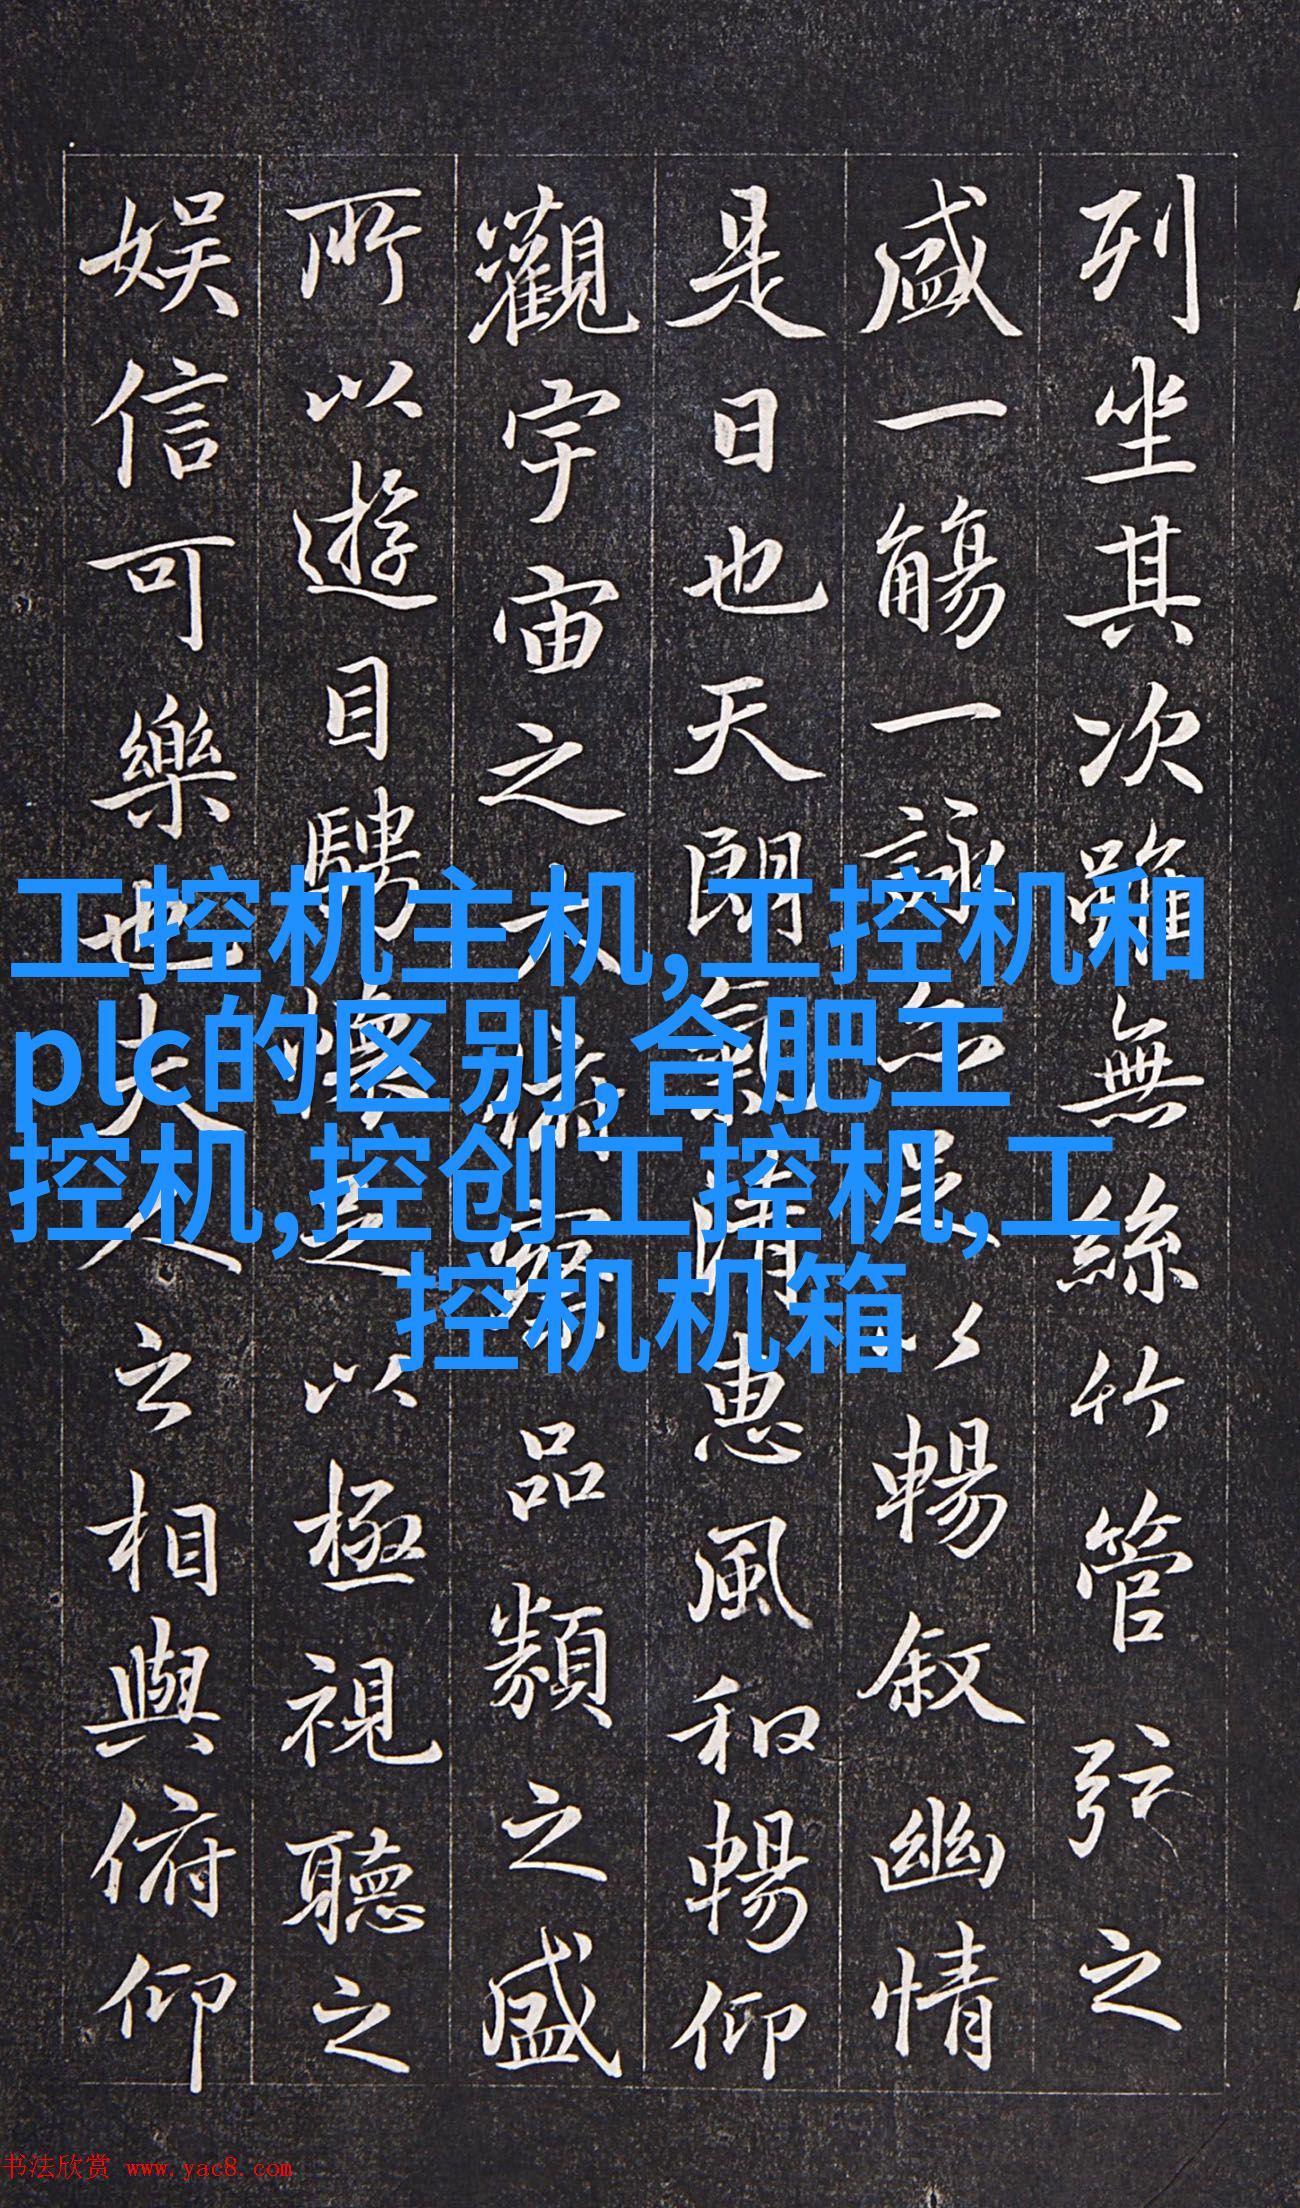 列坐其次雖無絲竹管弦之
盛一觴一詠亦足以暢叙幽情
是日也天朗氣清惠風和暢仰
觀宇宙之大俯察品類之盛
所以遊目騁懷足以極視聽之
娱信可樂也夫人之相與俯仰
工控机主机,工控机和
plc的区别,合肥工
控机,控创工控机,工
控机机箱
书法欣赏 www.yac8.com